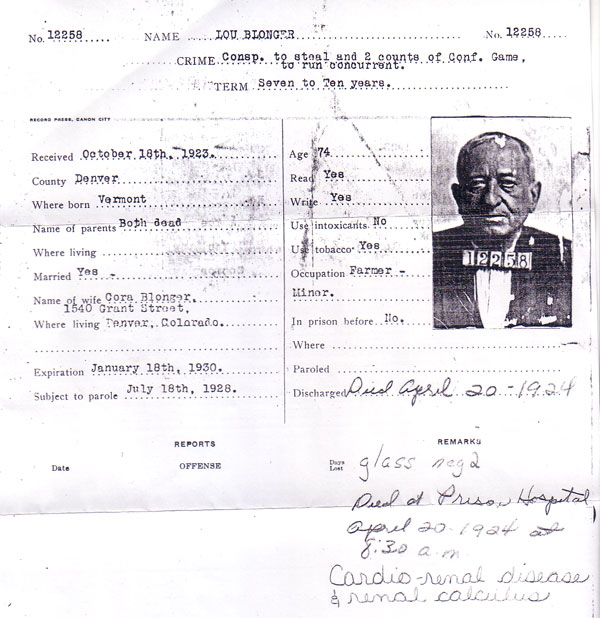 No. 12258 NAME LOU BLONGER No. 12258
CRIME Consp. to steal and 2 counts of Conf. Game,
to run concurrent.
TERM Seven to Ten years.
RECORD PRESS, CANON CITY
Received October 18th, 1923.
County Denver
Where born Vermont
Name of parents Both dead
Where living
Married Yes -
Name of wife Cora Blonger.
1540 Grant Street,
Where living Denver, Colorado.
Expiration January 18th, 1930.
Subject to parole July 18th, 1928.
Age 74
Read Yes
Write Yes
Use intoxicants No
Use tobacco Yes
Occupation Farmer -
Miner.
In prison before No.
Where
Paroled
Discharged Died April 20-1924
12258
REPORTS
Date OFFENSE
Days
Lost
REMARKS
glass neg 2
Died at Prison Hospital
April 20-1924 at
8:30 a.m
Cardio-renal disease
& renal calculus